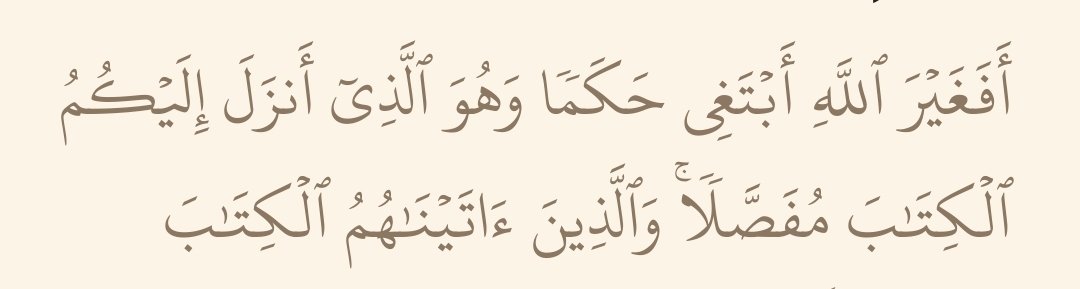 أَفَغَيْرَ ٱللَّهِ أَبْتَغِى حَكَمًا وَهُوَ ٱلَّذِىٓ أَنزَلَ إِلَيْكُمُ
ٱلْكِتَـٰبَ مُفَصَّلًا ۚ وَٱلَّذِينَ ءَاتَيْنَـٰهُمُ ٱلْكِتَـٰبَ